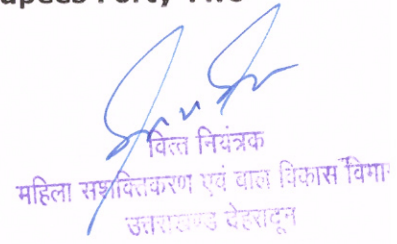 Rupees Forty Two
वित्त नियंत्रक
महिला सशक्तिकरण एवं बाल विकास विभा
उत्तराखण्ड देहरादून